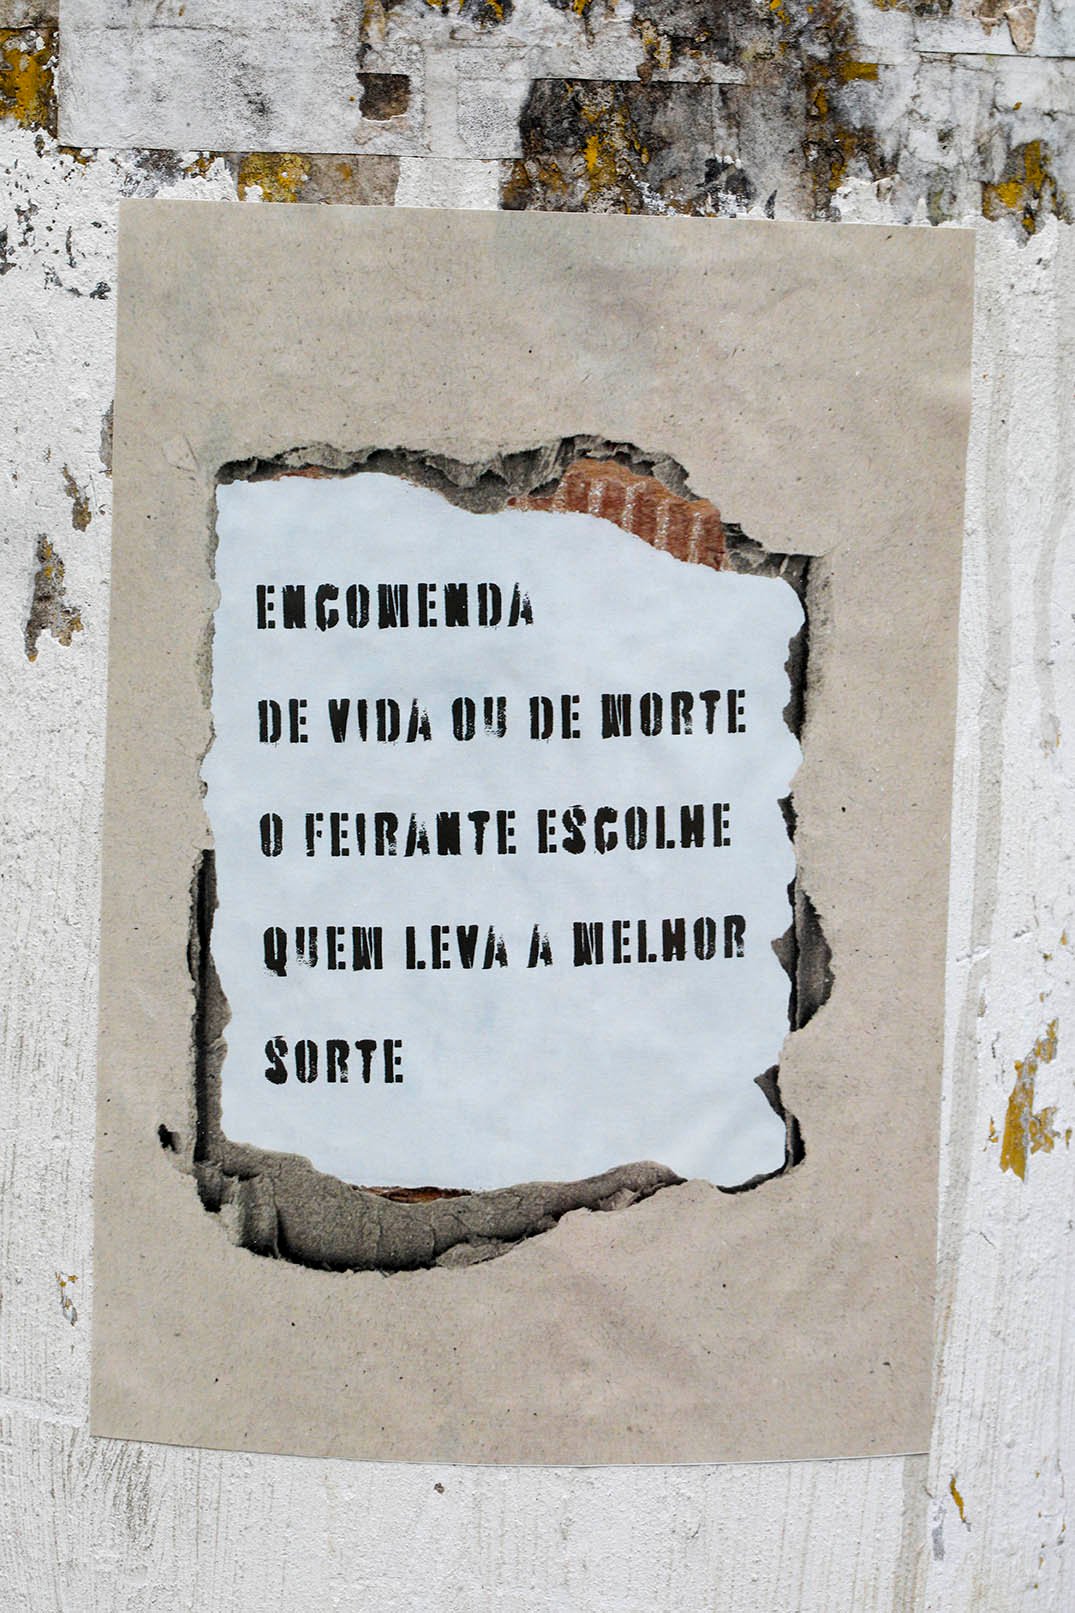 ENCOMENDA
DE VIDA OU DE MORTE
O FEIRANTE ESCOLHE
QUEM LEVA A MELHOR
SORTE